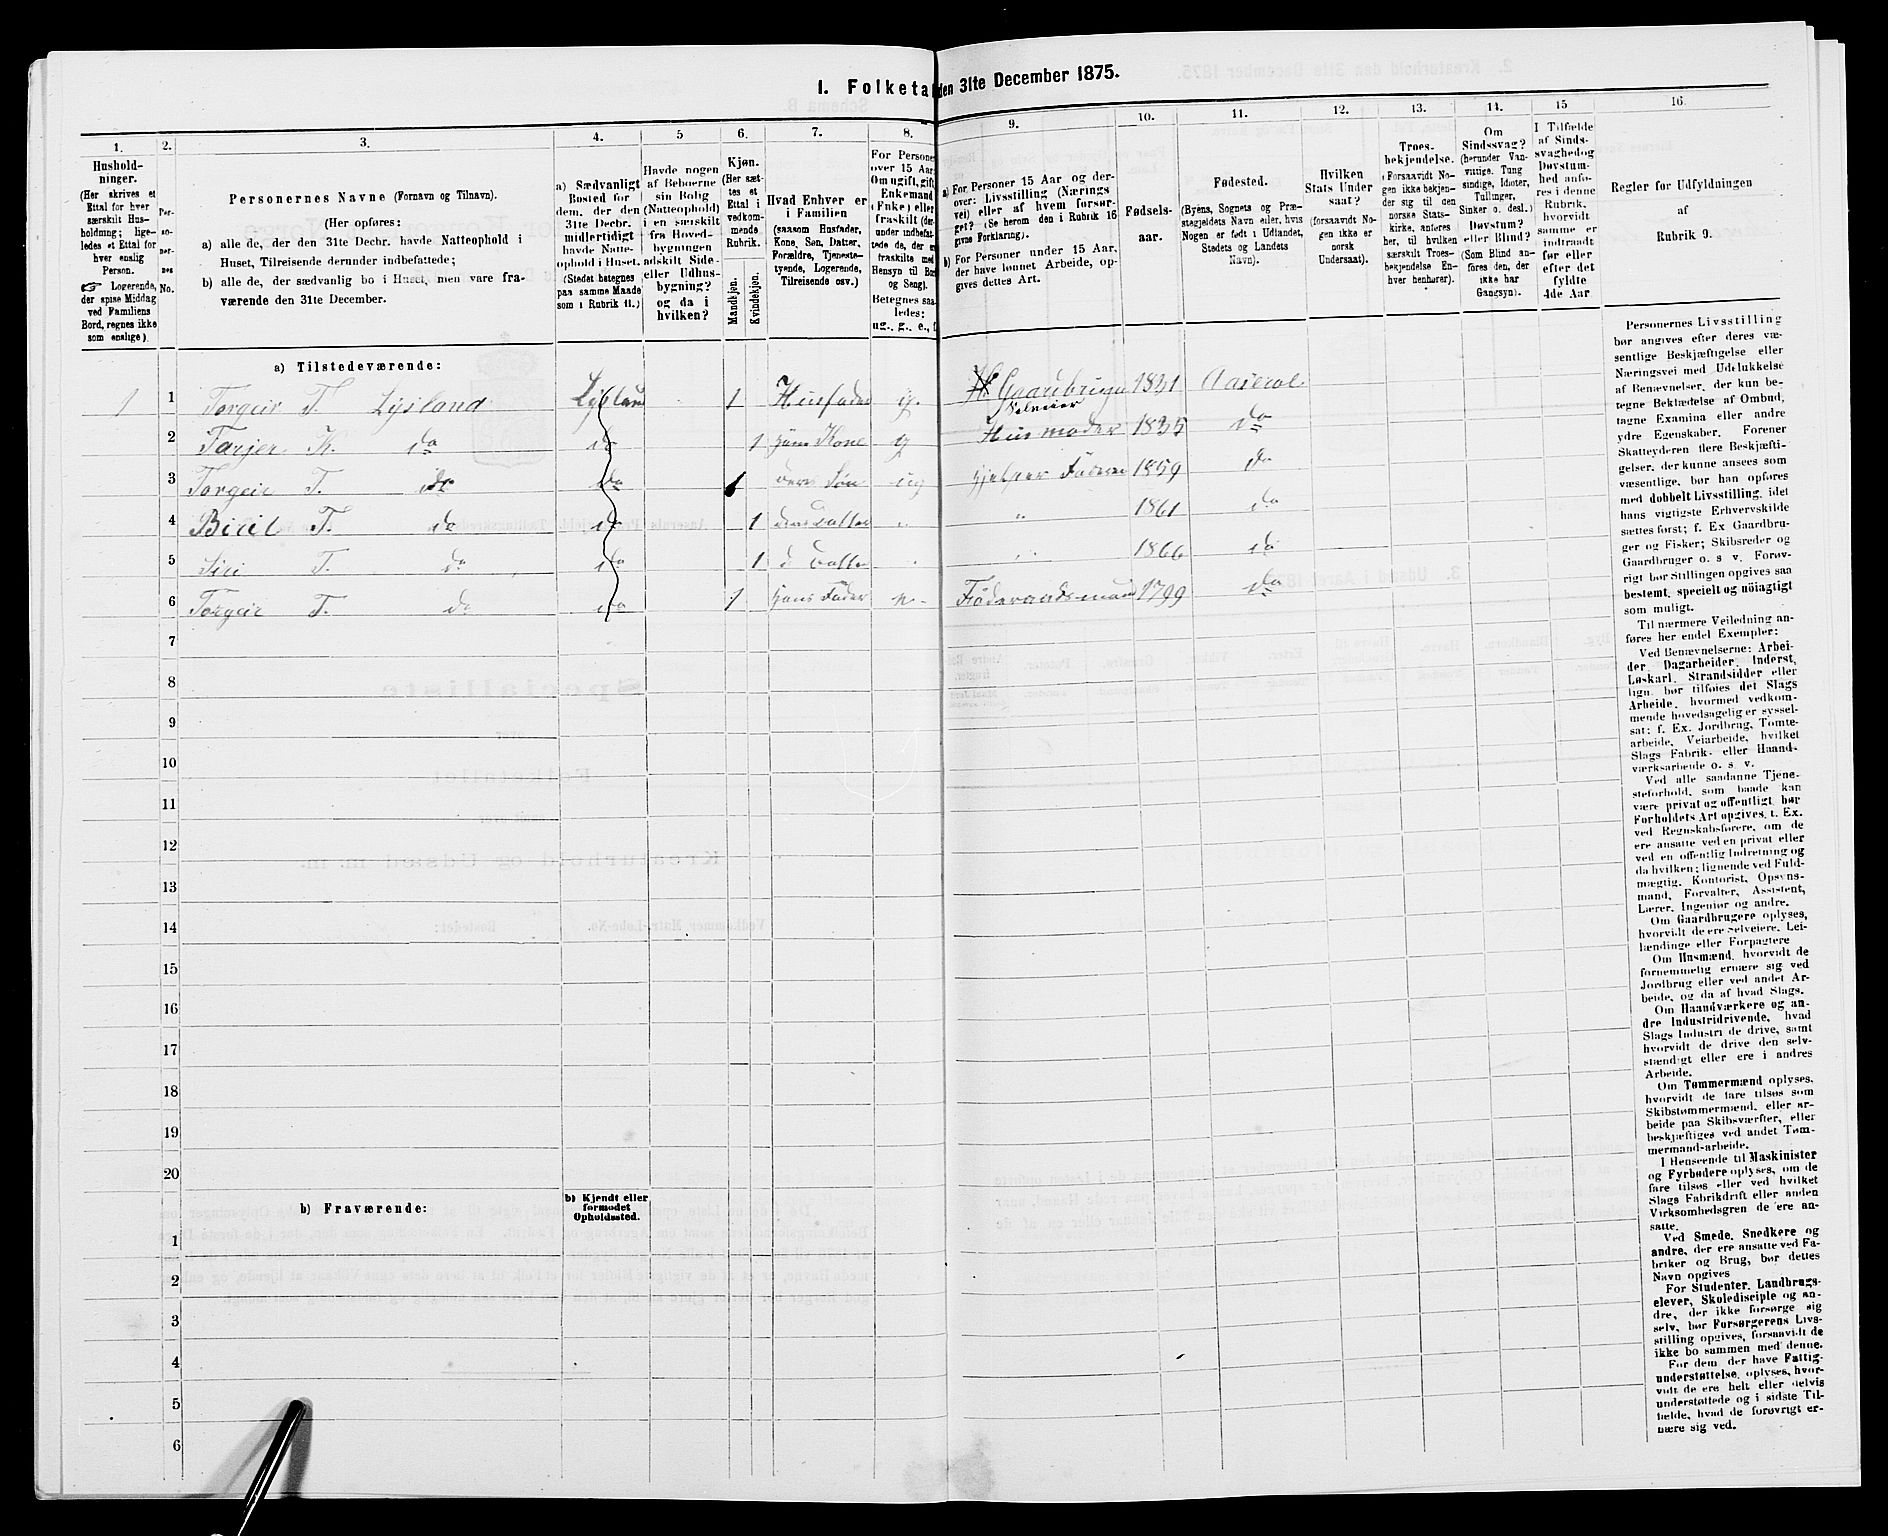 I. Folketa den 31te December 1875.
1.
2.
3.
4.
5
6.
7.
8.
9.
10.
11.
12.
13.
14.
15
16.
Hushold-
ninger.
(Her skrives et
Ettal for hver
særskilt Hus-
holdning; lige-
ledes et Ettal for
hver enslig
Person.
☞ Logerende,
der spise Middag
ved Familiens
Bord, regnes ikke
som enslige).
Per-
so-
ner-
nes
No.
Personernes Navne (Fornavn og Tilnavn).
(Her opføres:
a) alle de, der den 31te Decbr. havde Natteophold i
Huset, Tilreisende derunder indbefattede;
b) alle de, der sædvanlig bo i Huset, men vare fra-
værende den 31te December.
a) Sædvanligt
Bosted for
dem, der den
31te Decbr.
midlertidigt
havde Natte-
ophold i Huset.
(Stedet betegnes
paa samme Maade
som i Rubrik 11.)
Havde nogen
af Beboerne
sin Bolig
(Natteophold)
i en særskilt
fra Hoved-
bygningen
adskilt Side-
eller Udhus-
bygning?
og da i
hvilken?
Kjøn.
(Her sæt-
tes et
Ettal i
vedkom-
mende
Rubrik.
Mandkjøn.
Kvindekjøn.
Hvad Enhver er
i Familien
(saasom Husfader,
Kone, Søn, Datter,
Forældre, Tjeneste-
tyende, Logerende,
Tilreisende osv.)
For Personer
over 15 Aar:
Om ugift, gift,
Enkemand
(Enke) eller
fraskilt (der-
under indbefat-
tede de, der er
fraskilte med
Hensyn til Bord
og Seng).
Betegnes saa-
ledes:
ug., g., e., f.
a) For Personer 15 Aar og der-
over: Livsstilling (Nærings
vei) eller af hvem forsør-
get? (Se herom den i Rubrik 16
givne Forklaring).
b) For Personer under 15 Aar,
der have lønnet Arbeide, op-
gives dettes Art.
Fødsels-
aar.
Fødested.
(Byens, Sognets og Præ-
stegjeldets Navn eller, hvis
Nogen er født i Udlandet,
Stedets og Landets
Navn).
Hvilken
Stats Under
saat?
(forsaavidt No-
gen ikke er
norsk
Undersaat).
Troes-
bekjendelse.
(Forsaavidt No-
gen ikke bekjen-
der sig til den
norske Stats-
kirke, anføres
her, til hvilken
særskilt Troes-
bekjendelse En-
hver henhører).
Om
Sindssvag?
(herunder Van-
vittige, Tung
sindige, Idioter,
Tullinger,
Sinker o. desl.)
Døvstum?
eller Blind?
(Som Blind an-
føres den, der
ikke har
Gangsyn).
I Tilfælde
af Sinds-
svaghed og
Døvstum-
hed anfø-
res i denne
Rubrik,
hvorvidt
samme er
indtraadt
før eller
efter det
fyldte
4de Aar.
Regler for Udfyldningen
af
Rubrik 9.
a) Tilstedeværende:
1 1 Torgeir T. Lysland Lysland 1 Husfader g. Gaardbruger Selveier 1831 Aaseral
2 Tarjer K. do do 1 hans Kone g Husmoder 1835 do
3 Torgeir T. do do 1 deres Søn ug hjelper Faderen 1859 do
4 Biril T. do do 1 deres Datter " " 1861 do
5 Siri T. do do 1 d Datter " " 1866 do
6 Torgeir T. do do 1 hans Fader e Føderaadsmand 1799 do
7
8
9
10
11
12
13
14
15
16
17
18
19
20
b) Fraværende:
b) Kjendt eller
formodet
Opholdssted.
1
2
3
4
5
6
Personernes Livsstilling
bør angives efter deres væ-
sentlige Beskjæftigelse eller
Næringsvei med Udelukkelse
af Benævnelser, der kun be-
tegne Beklædelse af Ombud,
tagne Examina eller andre
ydre Egenskaber. Forener
Skatteyderen flere Beskjæfti-
gelser, der kunne ansees som
væsentlige, bør han opføres
med dobbelt Livsstilling, idet
hans vigtigste Erhvervskilde
sættes først; f. Ex Gaardbru-
ger og Fisker; Skibsreder og
Gaardbruger o. s v. Forøv-
rigt bør Stillingen opgives saa
bestemt, specielt og nöiagtigt
som muligt.
Til nærmere Veiledning an-
føres her endel Exempler:
Ved Benævnelserne: Arbei-
der, Dagarbeider, Inderst,
Løskarl, Strandsidder eller
lign. bør tilføies det Slags
Arbeide, hvormed vedkom-
mende hovedsagelig er syssel-
sat; f. Ex. Jordbrug, Tomte-
arbeide, Veiarbeide, hvilket
Slags Fabrik- eller Haand-
værksarbeide o. s. v.
Ved alle saadanne Tjene-
steforhold, som baade kan
være privat og offentligt, bør
Forholdets Art opgives, t. Ex.
ved Regnskabsførere, om de
ere ansatte ved en privat eller
ved en offentlig Indretning og
da hvilken; lignende ved Fuld-
mægtig, Kontorist, Opsyns-
mand, Forvalter, Assistent,
Lærer, Ingeniør og andre.
Om Gaardbrugere oplyses,
hvorvidt de ere Selveiere, Lei-
lændinge eller Forpagtere
Om Husmænd, hvorvidt de
fornemmelig ernære sig ved
Jordbrug eller ved andet Ar-
beide, og da af hvad Slags.
Om Haandværkere og an-
dre Industridrivende, hvad
Slags Industri de drive, samt
hvorvidt de drive den selv-
stændigt eller ere i andres
Arbeide.
Om Tømmermænd oplyses,
hvorvidt de fare tilsøs som
Skibstømmermænd, eller ar-
beide paa Skibsværfter, eller
beskjæftiges ved andet Tøm-
mermand-arbeide.
I Henseende til Maskinister
og Fyrbødere oplyses, om de
fare tilsøs eller ved hvilket
Slags Fabrikdrift eller anden
Virksomhedsgren de ere an-
satte.
Ved Smede, Snedkere og
andre, der ere ansatte ved Fa-
briker og Brug, bør dettes
Navn opgives
For Studenter, Landbrugs-
elever, Skoledisciple og an-
dre, der ikke forsørge sig
selv, bør Forsørgerens Livs-
stilling opgives, forsaavidt de
ikke bo sammen med denne.
For dem der have Fattig-
understøttelse, oplyses, hvor-
vidt de ere helt eller delvis
understøttede og i sidste Til-
fælde, hvad de forøvrigt er-
nære sig ved.